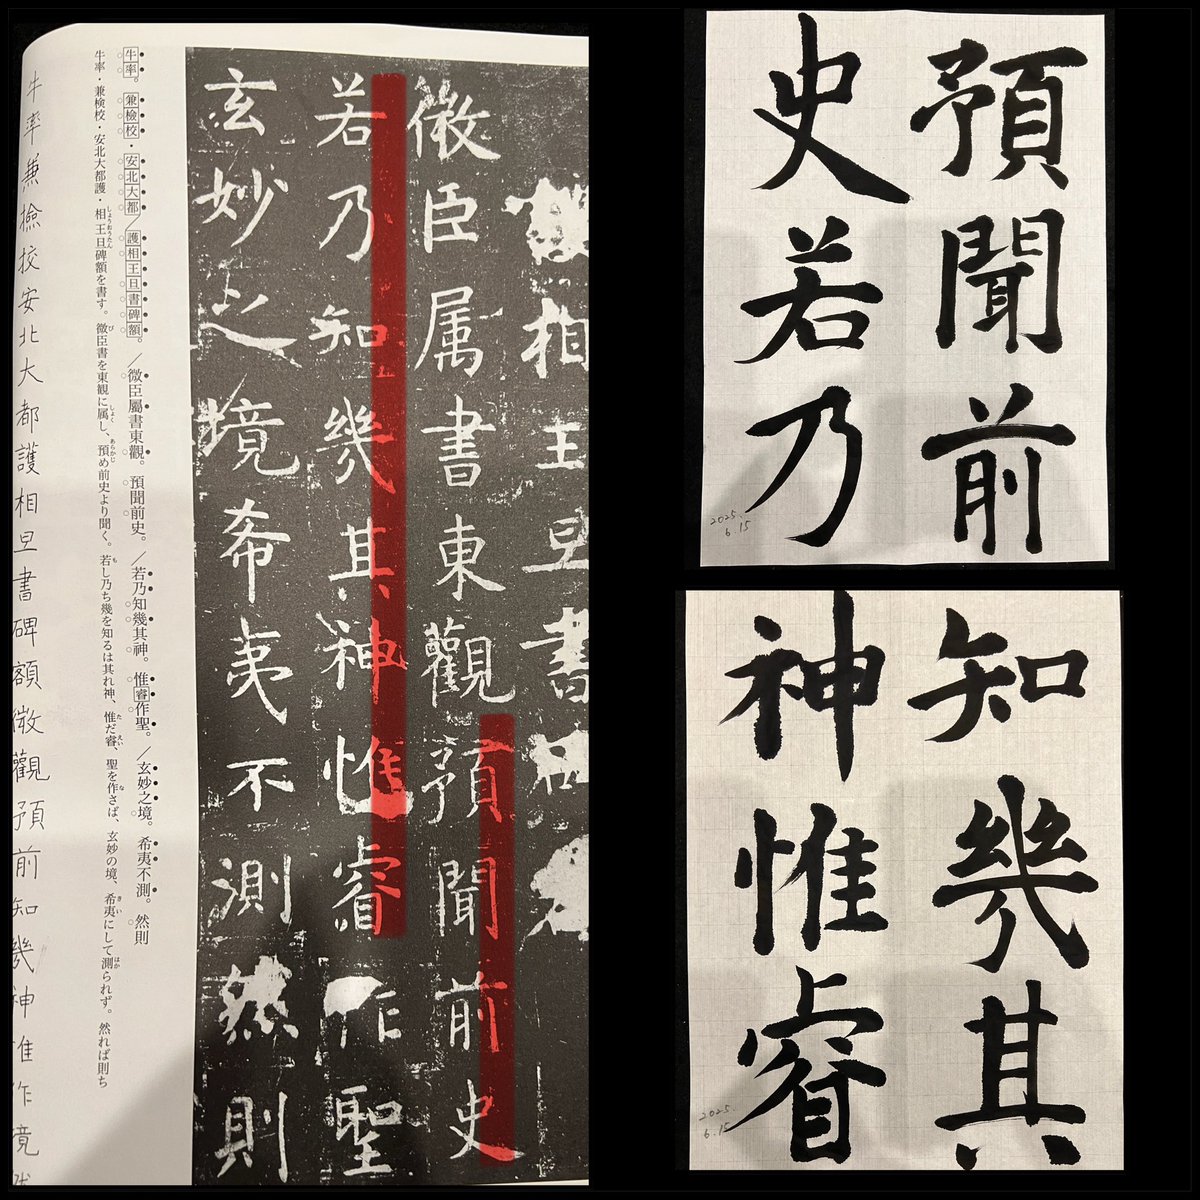 相王旦書碑
微臣属書東觀預聞前史
若乃知幾其神惟睿作聖
玄妙之境希夷不測然則
牛率。兼檢校・安北大都／護相王旦書碑額。／微臣屬書東觀。預聞前史。／若乃知幾其神。惟睿作聖。／玄妙之境。希夷不測。然則
牛率・兼検校・安北大都護・相王旦碑額を書す。微臣書を東観に属し、預め前史より聞く。若し乃ち幾を知るは其れ神、惟だ睿、聖を作さば、玄妙の境、希夷にして測られず。然れば則ち
牛率兼檢校安北大都護相旦書碑額微觀預前知幾神惟作境
預聞前
史若乃
2025.
6.15
知幾其
神惟睿
2025.
6.15